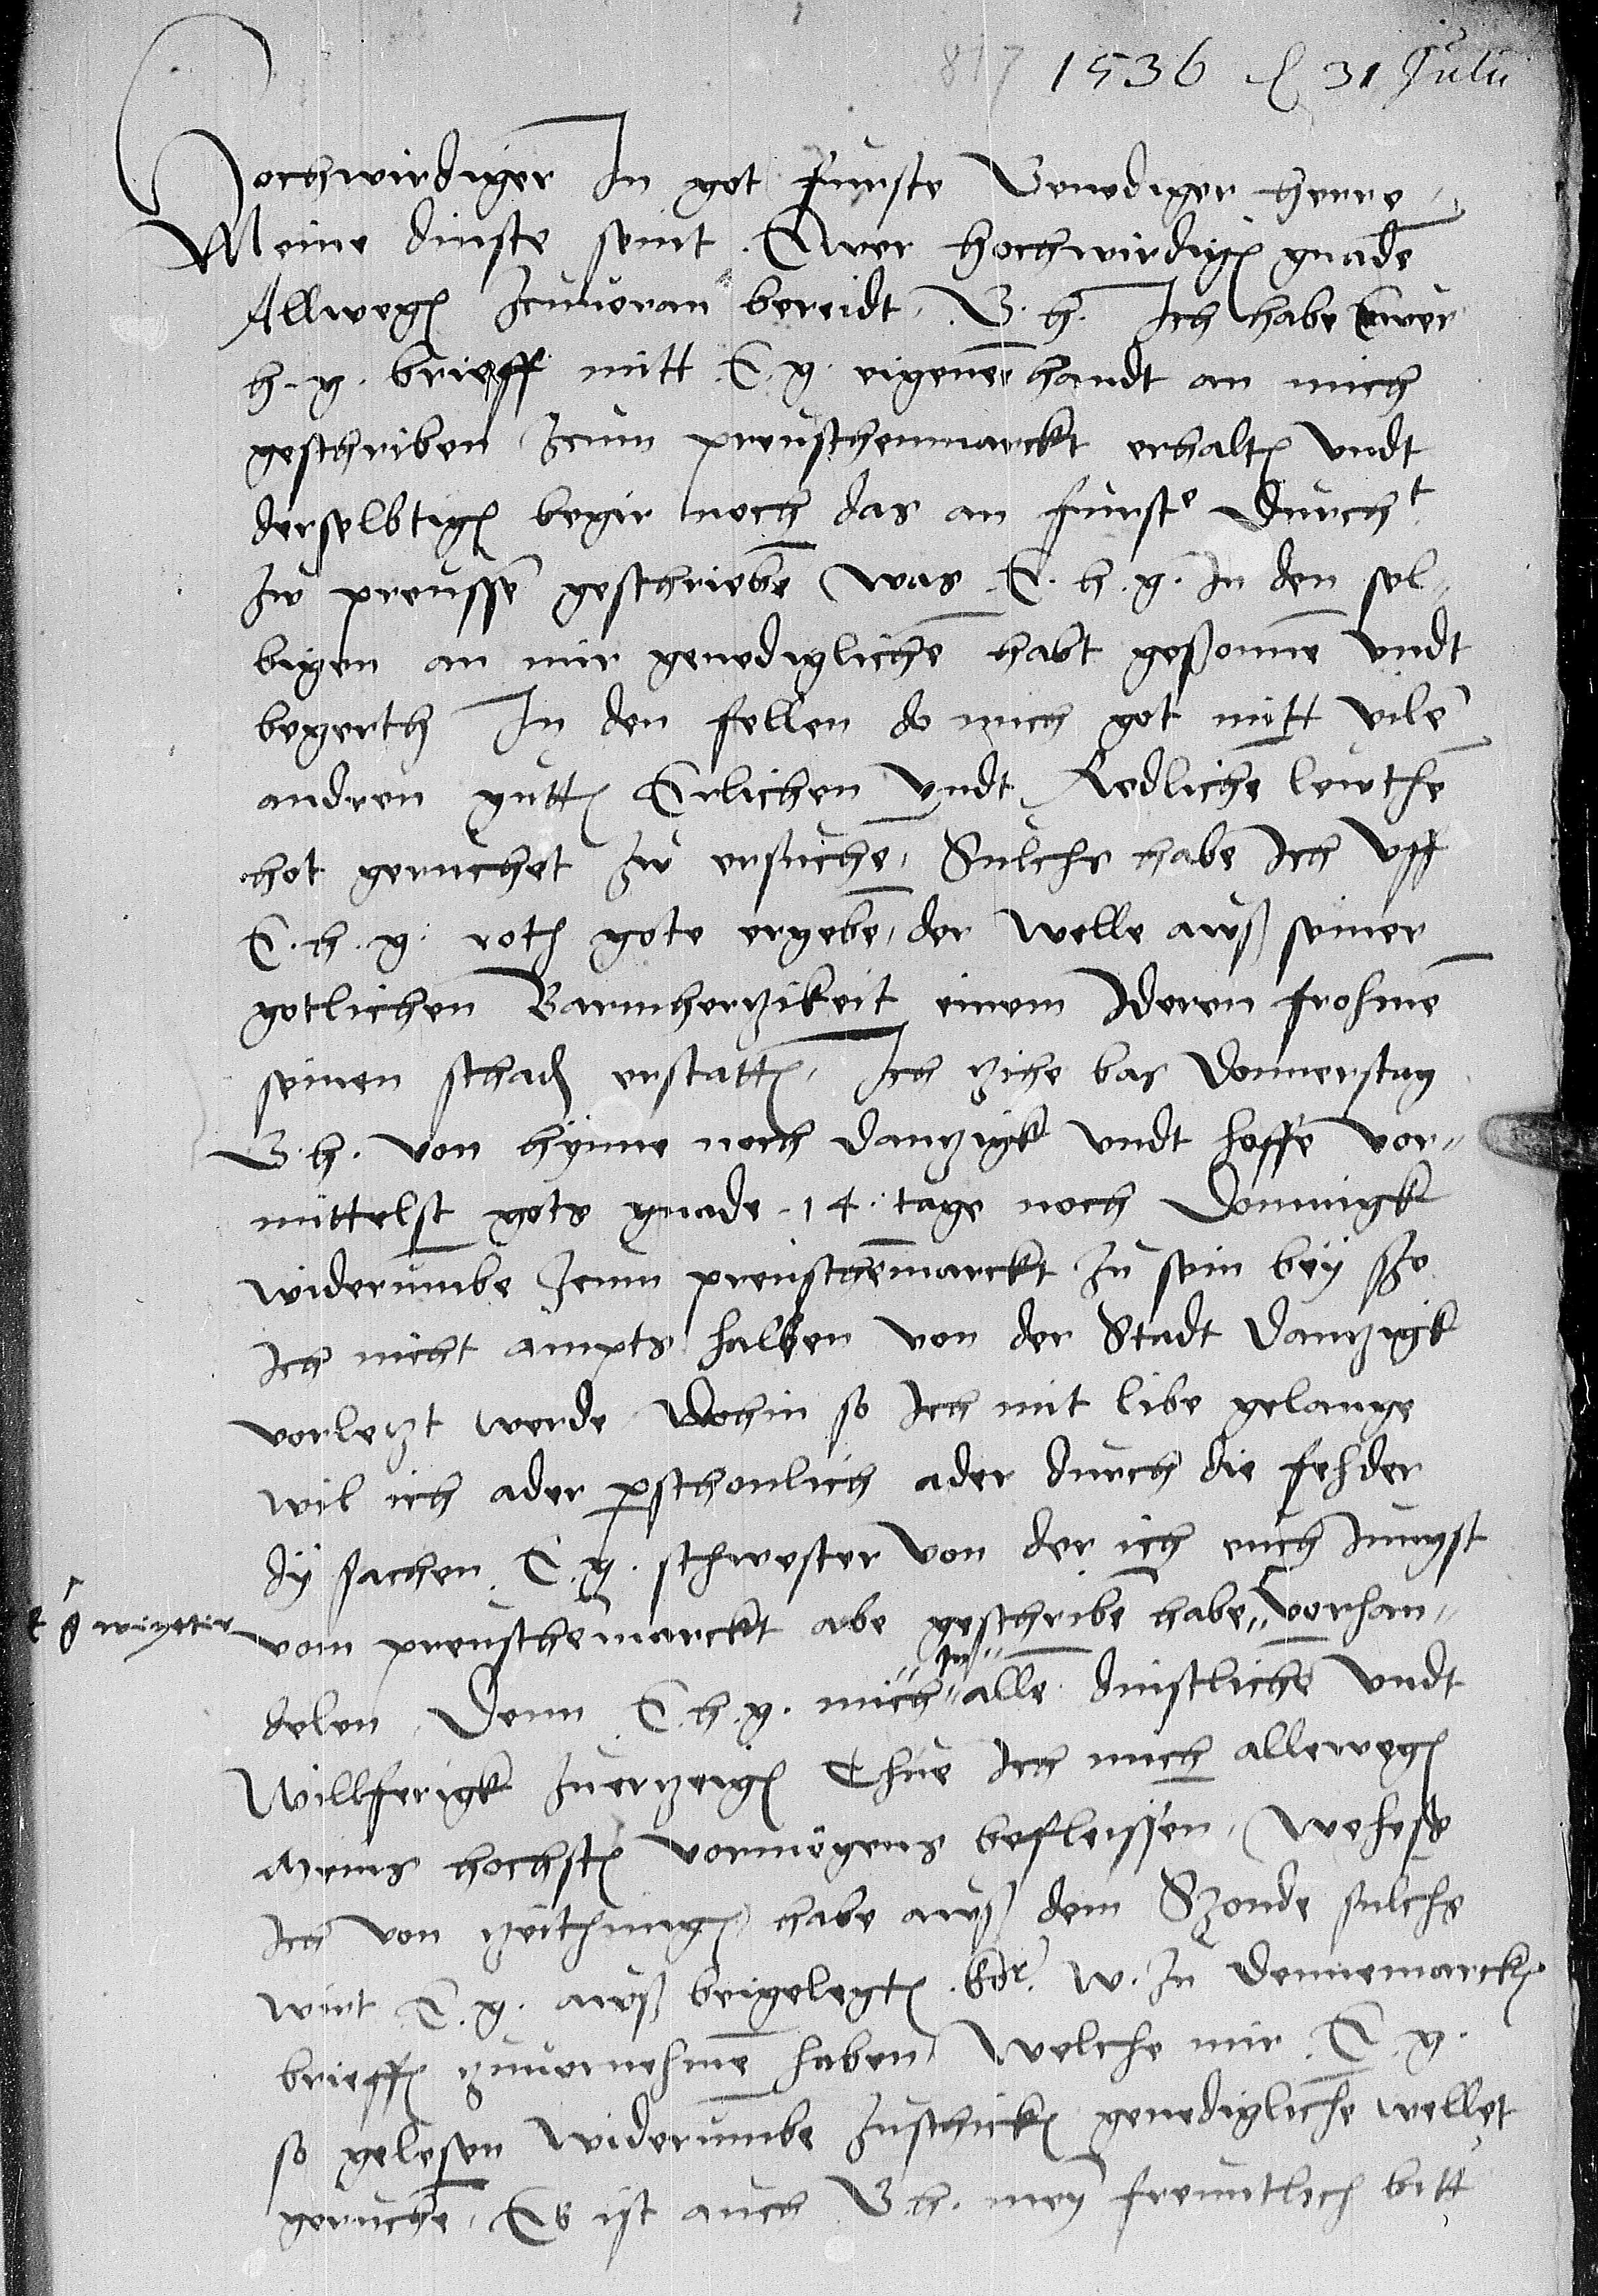 817 1536 31 Julii
Hochwirdiger In got furste Genediger herre
Meine dinste seint Ewer hochwirdigen gnade
Allwegen zcuuoran bereidt. G. h. Ich habe ewer
h. g. brieff mitt E. g. eigener handt an mich
geschriben zcum preuschenmarckt erhalten vndt
derselbtigen beger noch das an furste durcht
zu preussen geschrieben was E. h. g. In den sel-
bigen an mir genediglichen habt gesonnen vndt
begerth In den fellen do mich got mitt vilen
andren gutten Erlichen vndt Redlichen leuthen
hot geruchet zu ersuchen, Sulchs habe Ich vff
E. h. g. roth gote ergeben, der welle auß seiner
gotlichen Barmherzikeit einem Ideren frohmen
seinen schaden erstatten, Ich zihe bas Donnerstag
G. h. von hynne noch danzigk vndt hoffe vor-
mittelst gots gnade 14 tage noch Dominigk
widerumbe zcum preuschenmarckt zu sein bey szo
Ich nicht ampts halben von der Stadt danzigk
vorlezt werde Wohin so Ich mit libe gelange
wil ich ader perschonlich ader durch die fehder
dy sachen E. g. schwester von der ich euch Jungst
vom preuschenmarckt abe geschriben habe vorhan-
delen, Denn E. h. g. mich In allen dinstlichen vndt
willferigk zuerzeigen Thue Ich mich allewegen
Meins hochsten vormögens befleissen, Wehess
Ich von zeithungen habe auß dem Szonde sulchs
wirt E. g. auß beigelegten W. zu Dennemarcken
brieffen zuuornehmen haben Welche mir E. g.
so gelesen widerumbe zuschicken genediglichen wellet
geruchen, Es ist auch G. h. mey freuntlich bitt